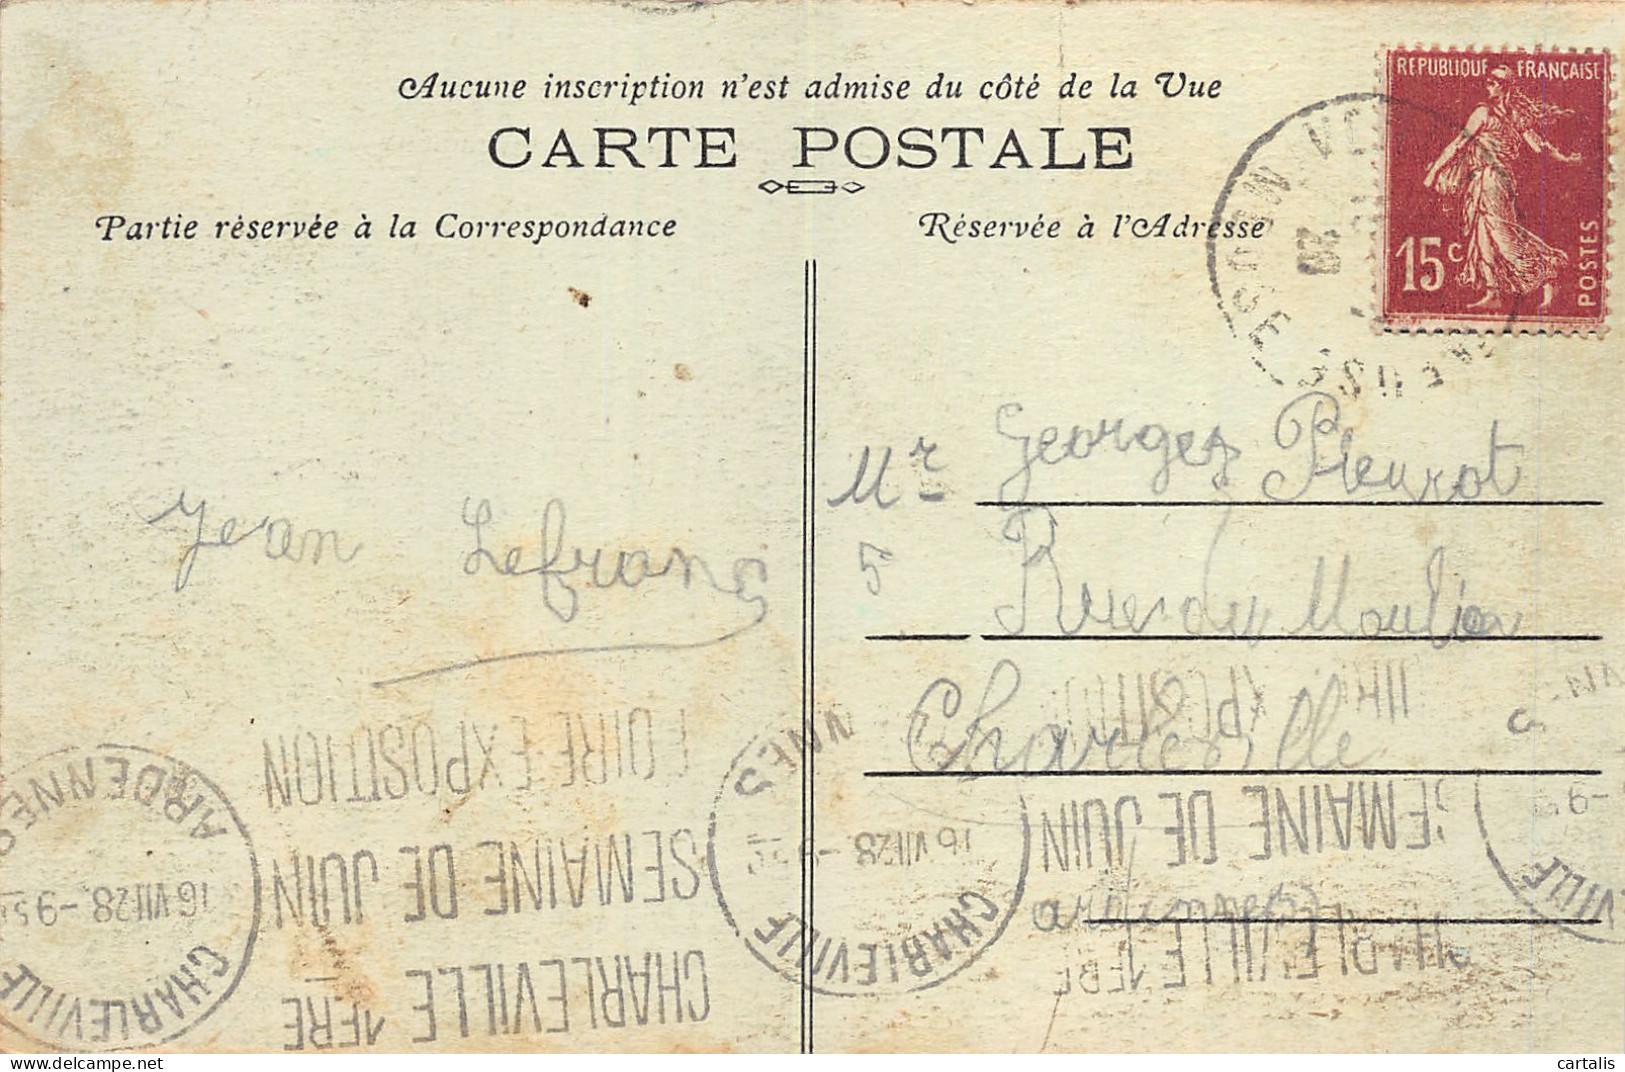 Aucune inscription n'est admise du côté de la Vue
CARTE POSTALE
Partie réservée à la Correspondance
Réservée à l'Adresse
REPUBLIQUE FRANÇAISE
15c
POSTES
Mr Georges Pleurot
5 Rue du Moulin
Charleville
ardennes
Jean Lefranc
FOIRE EXPOSITION
SEMAINE DE JUIN
CHARLEVILLE 1ERE
CHARLEVILLE
16 VII 28
ARDENNES
CHARLEVILLE
16 VII 28
EXPOSITION
SEMAINE DE JUIN
CHARLEVILLE 1ERE
cartalis